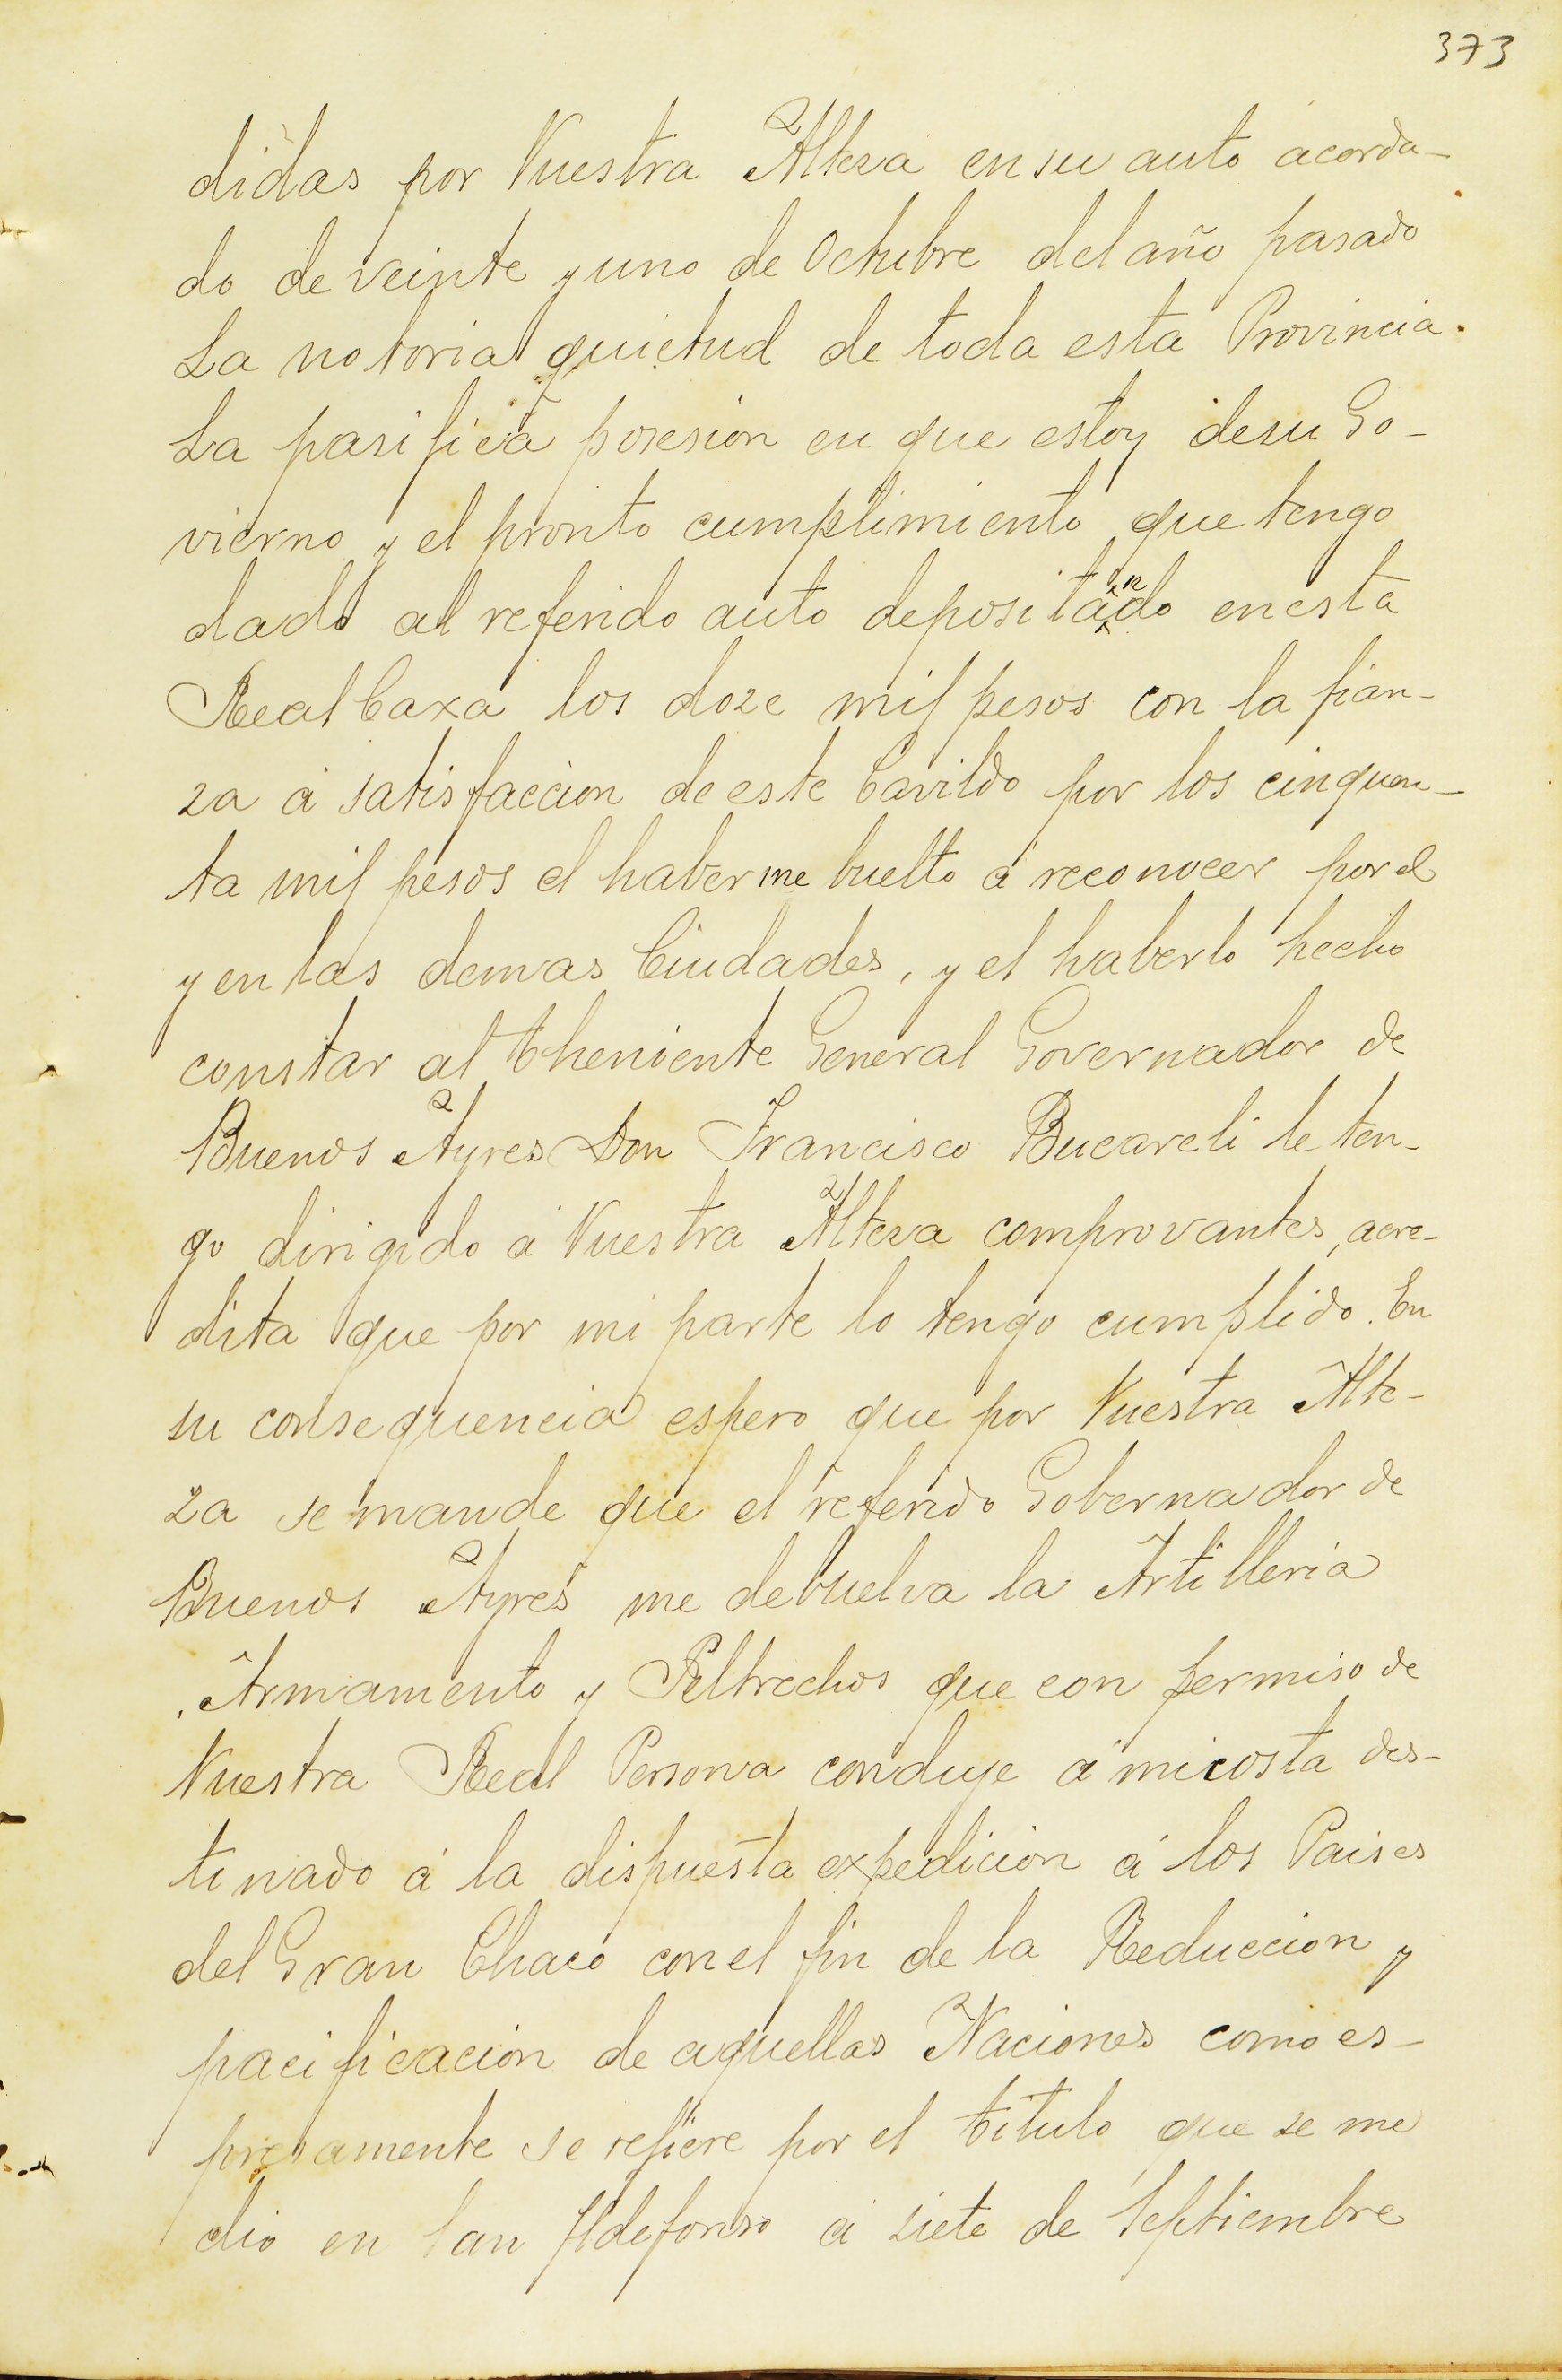 373
didas por Vuestra Alteza en su auto acorda-
do de veinte y uno de Octubre del año pasado
La notoria quietud de toda esta Provincia.
La pasifica posesión en que estoy desu Go-
vierno y el pronto cumplimiento que tengo
dado al referido auto depositando en esta
Real Caxa los doze mil pesos con la fian-
za á satisfaccion de este Cavildo por los cinquen-
ta mil pesos el haberme buelto á reconocer por el
y en las demas Ciudades, y el haberlo hecho
constar al Theniente General Governador de
Buenos Ayres Don Francisco Bucareli le ten-
go dirigido á Vuestra Alteza comprovantes, acre-
dita que por mi parte lo tengo cumplido. En
su consequencia espero que por Vuestra Alte-
za se mande que el referido Gobernador de
Buenos Ayres me debuelva la Artilleria
Armamento y Peltrechos que con permiso de
Vuestra Real Persona conduje á mi costa des-
tinado á la dispuesta expedición á los Paises
del Gran Chaco con el fin de la Reduccion y
pacificacion de aquellas Naciones como es-
presamente se refiere por el titulo que se me
dio en San Ildefonso á siete de Septiembre